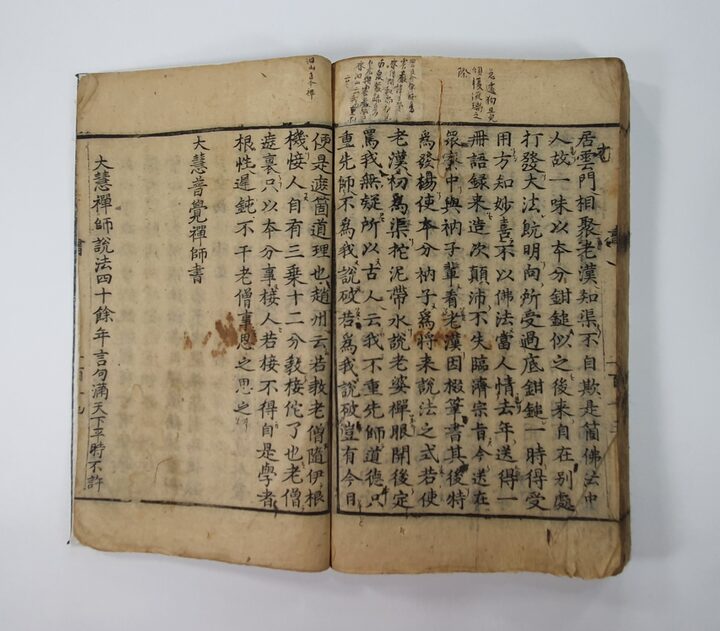 居雲門相聚老漢知渠不自欺是箇佛法中
人故一味以本分鉗鎚似之後來自在別處
打發大法既明向所受過底鉗鎚一時得受
用方知妙喜不以佛法當人情去年送得一
冊語録來造次顛沛不失臨濟宗旨今送在
衆寮中與衲子輩看老漢因掇筆書其後特
爲發揚使本分衲子爲將來說法之式若使
老漢初爲渠拕泥帶水說老婆禪眼開後定
罵我無疑所以古人云我不重先師道德只
重先師不爲我說破若爲我說破豈有今日
便是遮箇道理也趙州云若教老僧隨伊根
機接人自有三乘十二分教接佗了也老僧
遮裏只以本分事接人若接不得自是學者
根性遲鈍不干老僧事思之思之
大慧普覺禪師書
大慧禪師說法四十餘年言句滿天下平時不許